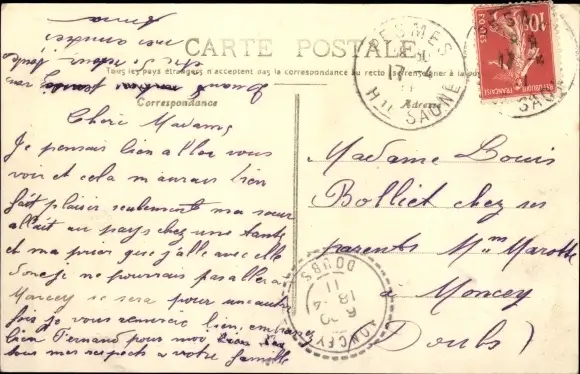 CARTE POSTALE
Tous les pays étrangers n'acceptent pas la correspondance au recto
Correspondance
Adresse
Chère Madame,
Je pensais bien aller vous
voir et cela m'aurais bien
fait plaisir seulement ma sœur
allait au pays chez une tante
et ma prier que j'alle avec elle
donc je ne pourrais pas aller a
Moncey se sera pour une autre
fois je vous remercie bien, embrassez
bien Fernand pour moi
tous mes respects a votre famille
Madame Louis
Bolliet chez ses
parents Mr Marotte
a Moncey
Doubs)
10c
POSTES
REPUBLIQUE FRANÇAISE
17-4
11
Hte SAONE
MONCEY
18-4
11
DOUBS